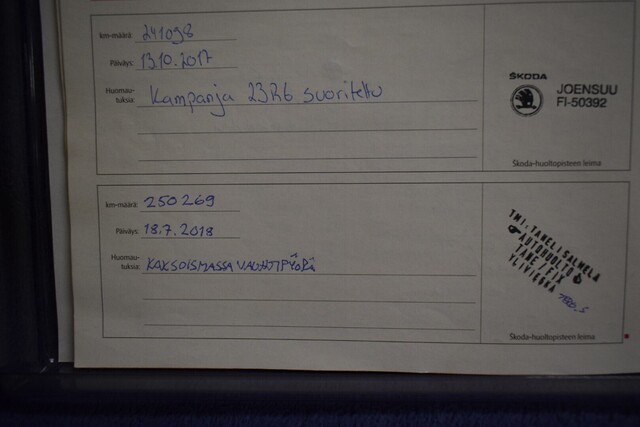 km-määrä: 241098
Päiväys: 13.10.2017
Huomau-
tuksia: Kampanja 23R6 suoritettu
ŠKODA
JOENSUU
FI-50392
Škoda-huoltopisteen leima
km-määrä: 250269
Päiväys: 18.7.2018
Huomau-
tuksia: KAKSOISMASSA VAUHTIPYÖRÄ
TMI. TANELI SALMELA
AUTOHUOLTO
TANE/FIX
YLIVIESKA
Škoda-huoltopisteen leima